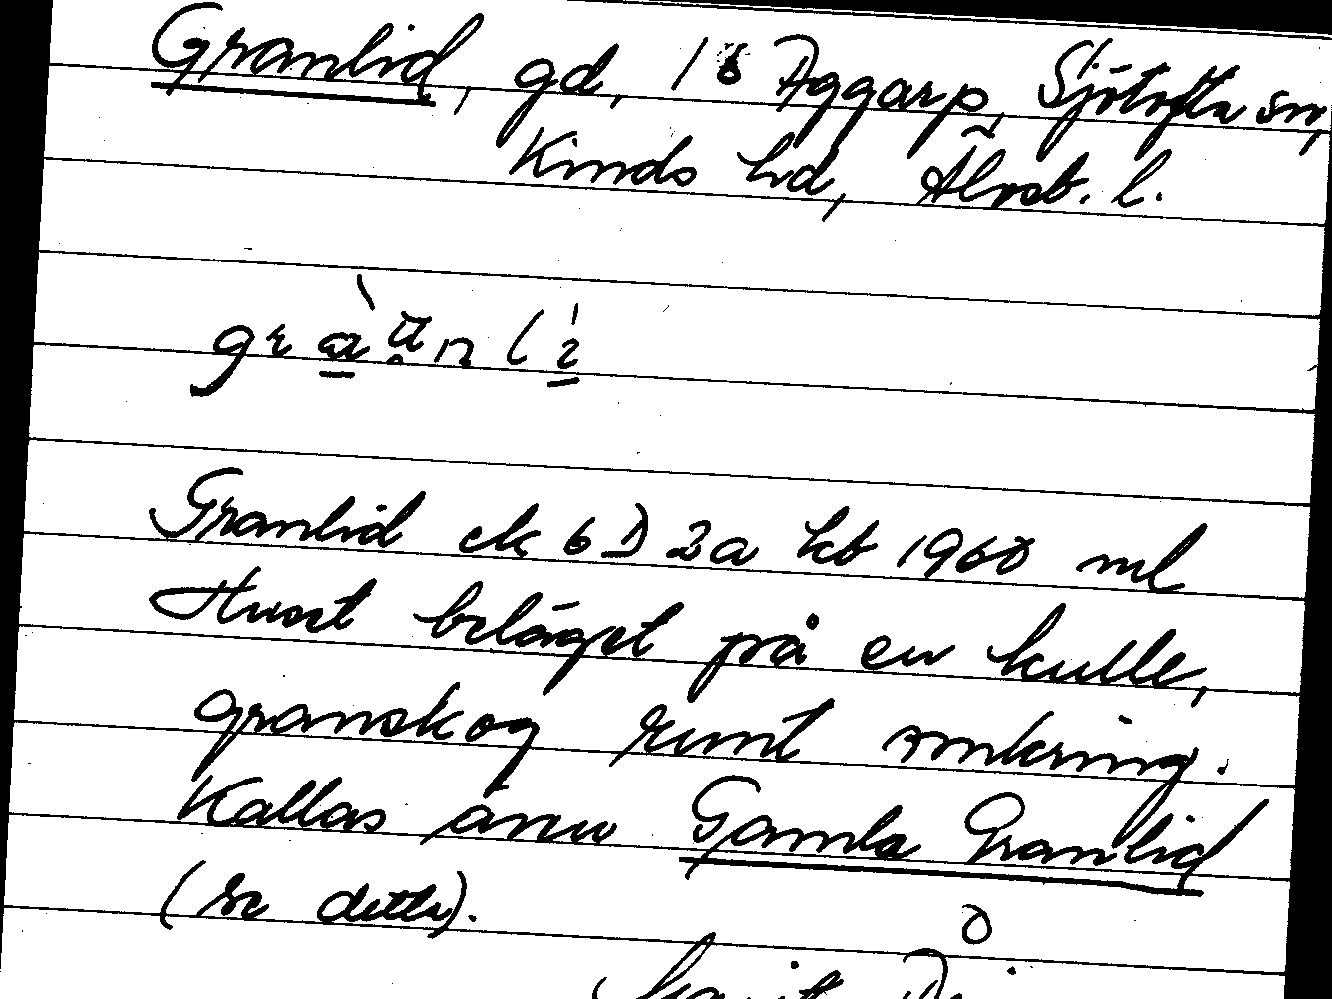 Granlid, gd, 16 Aggarp, Sjötofta sn,
Kinds hd, Älvsb. l.
Granlid ek 6D 2a kb 1960 ml
Huset beläget på en kulle,
granskog runt omkring.
Kallas även Gamla Granlid
(se detta).